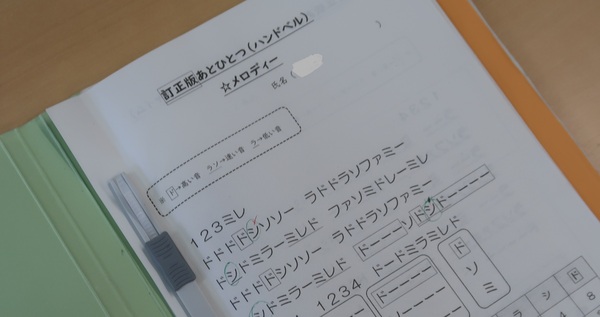 訂正版あとひとつ(ハンドベル)
☆メロディー
氏名( )
※ ド→高い音 ラソ→速い音 ラ→低い音
123ミレ
ドドドドシソソー ラドドラソファミー
ドシドミラーミレド ファソミドレーミレ
ドドドドシソソー ラドドラソファミー
シドミラーミレド ドーーーソドシドーーーー
1234 ドードミラミレド
ドーーーー
ド
ソ
ミ
ラ シ ド
8